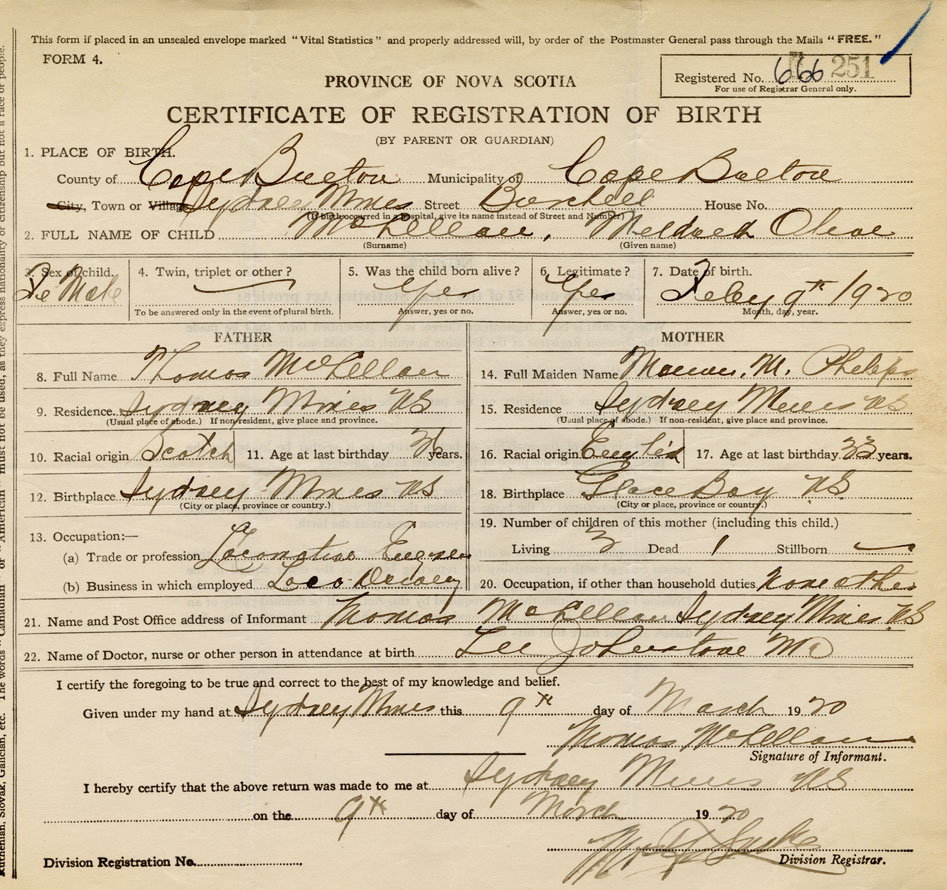 This form if placed in an unsealed envelope marked "Vital Statistics" and properly addressed will, by order of the Postmaster General pass through the Mails "FREE."
FORM 4.
Registered No. 666 251
For use of Registrar General only.
PROVINCE OF NOVA SCOTIA
CERTIFICATE OF REGISTRATION OF BIRTH
(BY PARENT OR GUARDIAN)
1. PLACE OF BIRTH.
County of Cape Breton Municipality of Cape Breton
City, Town or Village Sydney Mines Street House No.
(If birth occurred in a hospital, give its name instead of Street and Number)
2. FULL NAME OF CHILD McLellan, Mildred Olive
(Surname) (Given name)
3. Sex of child. 4. Twin, triplet or other? 5. Was the child born alive? 6. Legitimate? 7. Date of birth.
Fe Male — Yes Yes Feby 9th 1920
To be answered only in the event of plural birth. Answer, yes or no. Answer, yes or no. Month, day, year.
FATHER
8. Full Name Thomas McLellan
9. Residence. Sydney Mines NS
(Usual place of abode.) If non-resident, give place and province.
10. Racial origin Scotch 11. Age at last birthday years.
12. Birthplace Sydney Mines NS
(City or place, province or country.)
13. Occupation:—
(a) Trade or profession Locomotive Engineer
(b) Business in which employed Loco
MOTHER
14. Full Maiden Name M. Phelps
15. Residence Sydney Mines NS
(Usual place of abode.) If non-resident, give place and province.
16. Racial origin English 17. Age at last birthday 33 years.
18. Birthplace Glace Bay NS
(City or place, province or country.)
19. Number of children of this mother (including this child.)
Living 3 Dead 1 Stillborn —
20. Occupation, if other than household duties. none other
21. Name and Post Office address of Informant Thomas McLellan Sydney Mines NS
22. Name of Doctor, nurse or other person in attendance at birth Johnstone MD
I certify the foregoing to be true and correct to the best of my knowledge and belief.
Given under my hand at Sydney Mines this 9th day of March 1920
Thomas McLellan
Signature of Informant.
I hereby certify that the above return was made to me at Sydney Mines NS
on the 9th day of March 1920
Division Registration No.
Division Registrar.
Ruthenian, Slovak, Galician, etc. The words "Canadian" or "American" must not be used, as they express nationality or citizenship but not a race or people.